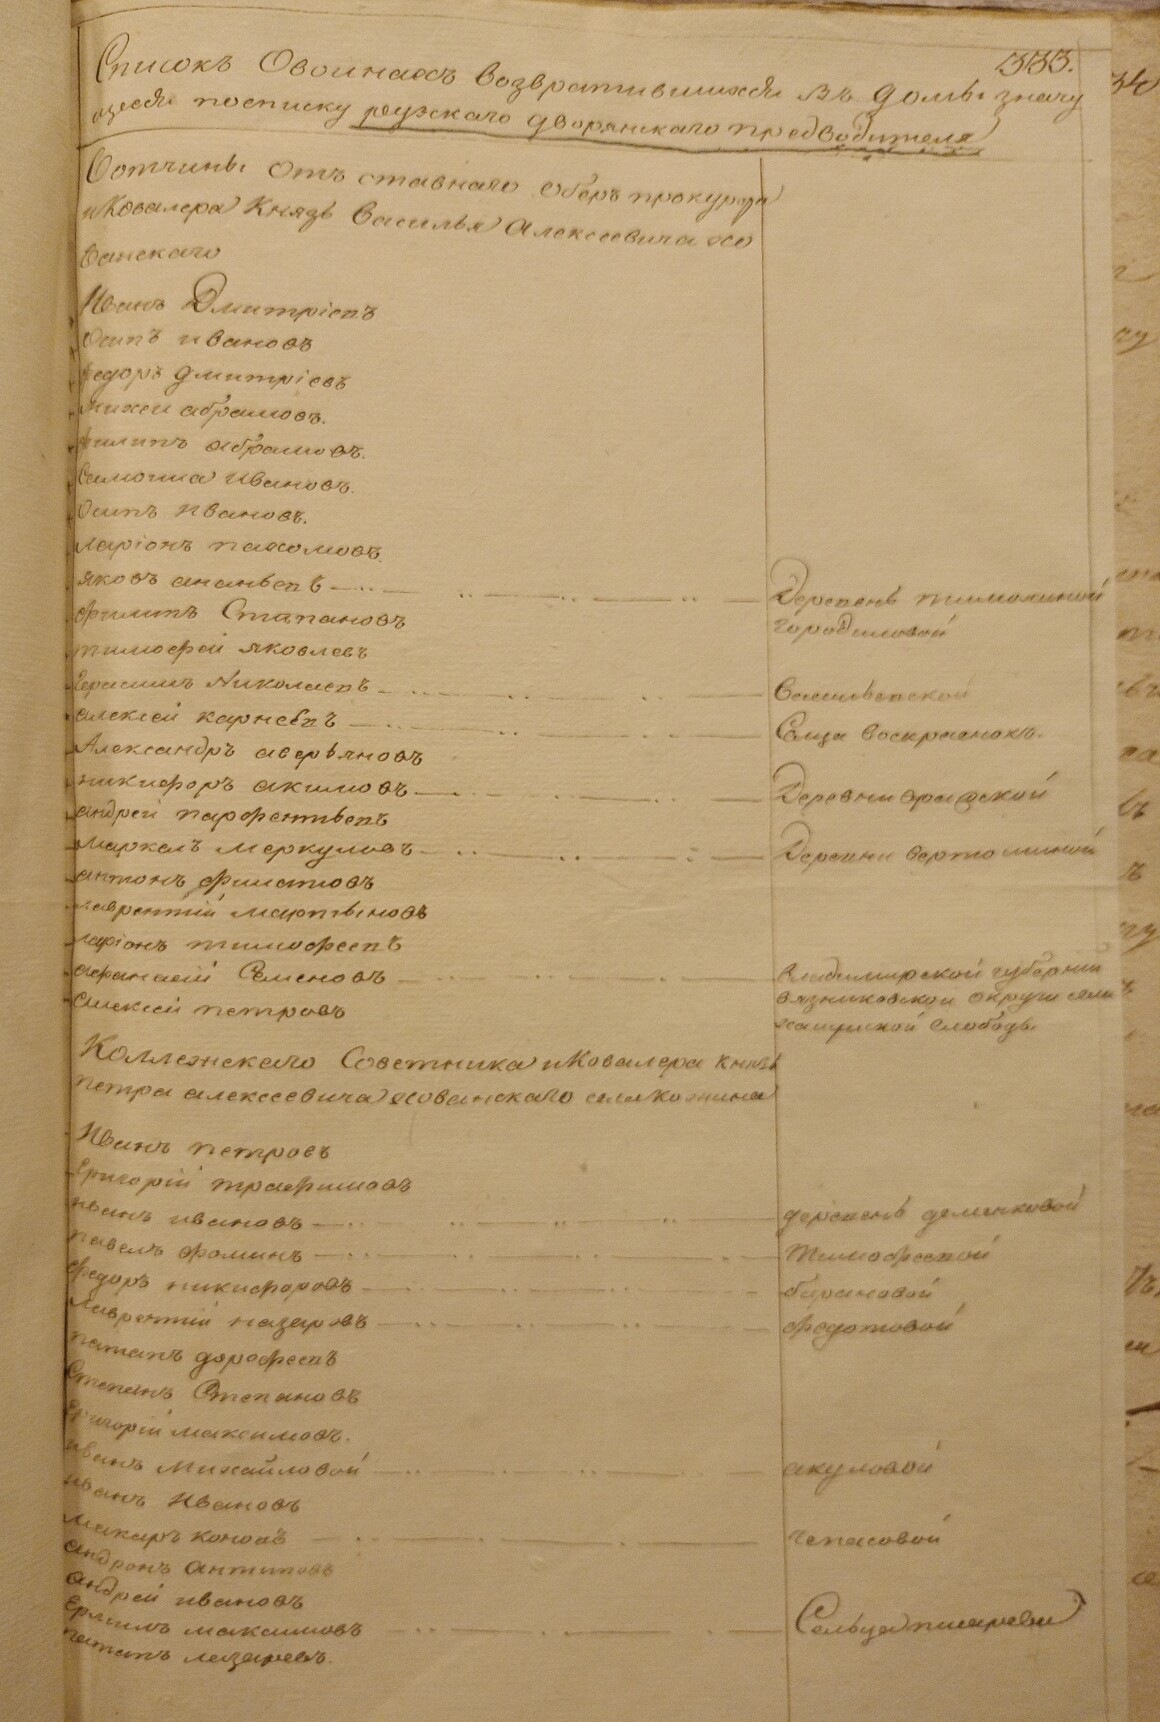 333.
Списокъ Овоинахъ возвратившихся въ домы значу
щееся посписку рузскаго дворянскаго предводителя
Вотчины отъ ставнаго оберъ прокурора
иКовалера Князь Василья Алексеевича хо
ванскаго
Иванъ Дмитріевъ
Осипъ ивановъ
федоръ дмитріевъ
михеи абрамовъ.
филипъ абрамовъ.
Самоила Ивановъ.
Осипъ Ивановъ.
ларіонъ пахомовъ.
яковъ ананьевъ Деревень тимохиной
филипъ Степановъ городиловой
тимофей яковлевъ
герасимъ Николаевъ васильевской
алексей карнеевъ Селца воскрасновъ.
Александръ аверьяновъ
никифоръ акимовъ Деревни
андрей парфентьевъ
маркелъ меркуловъ Деревни
антонъ филатовъ
лаврентій мартыновъ
ларіонъ тимофеевъ
афанасій Семеновъ владимирской губерніи
алексей петровъ вязниковской округи села
слободы
Коллежскаго Советника иКовалера князь
петра алексеевича хованскаго села кожина
Иванъ петровъ
григорій трафимовъ
иванъ ивановъ деревень деменковой
павелъ фоминъ тимофеевой
федоръ никифоровъ барановой
лаврентій назаровъ федотовой
патапъ дорофеевъ
Степанъ Степановъ
григорій максимовъ.
иванъ Михайловой акуловой
иванъ Ивановъ
макаръ коновъ чепасовой
андронъ антиповъ
андрей ивановъ
ермилъ максимовъ Сельца писарева
патапъ лазаревъ.